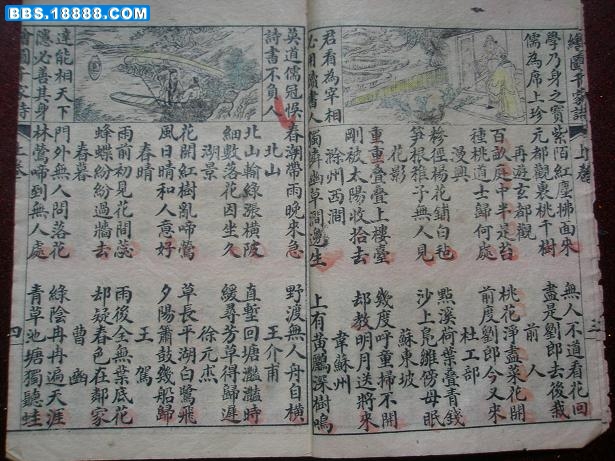 BBS.18888.COM
繪圖千家詩
上卷
三
學乃身之寶
儒為席上珍
君看為宰相
必用讀書人
紫陌紅塵拂面來
無人不道看花回
元都觀裏桃千樹
盡是劉郎去後栽
再遊玄都觀
前人
百畝庭中半是苔
桃花淨盡菜花開
種桃道士歸何處
前度劉郎今又來
漫興
杜工部
糝徑楊花鋪白毡
點溪荷葉叠青錢
笋根稚子無人見
沙上鳧雛傍母眠
花影
蘇東坡
重重叠叠上樓臺
幾度呼童掃不開
剛被太陽收拾去
却教明月送將來
滁州西澗
韋蘇州
獨憐幽草澗邊生
上有黃鸝深樹鳴
莫道儒冠悞
詩書不負人
達能相天下
隱必善其身
春潮帶雨晚來急
野渡無人舟自橫
北山
王介甫
北山輸綠漲橫陂
直塹回塘灔灔時
細數落花因坐久
緩尋芳草得歸遲
湖景
徐元杰
花開紅樹亂啼鶯
草長平湖白鷺飛
風日晴和人意好
夕陽簫鼓幾船歸
春晴
王駕
雨前初見花間蕊
雨後全無葉底花
蜂蝶紛紛過牆去
却疑春色在鄰家
春暮
曹豳
門外無人問落花
綠陰冉冉遍天涯
林鶯啼到無人處
青草池塘獨聽蛙
繪圖千家詩
上卷
四